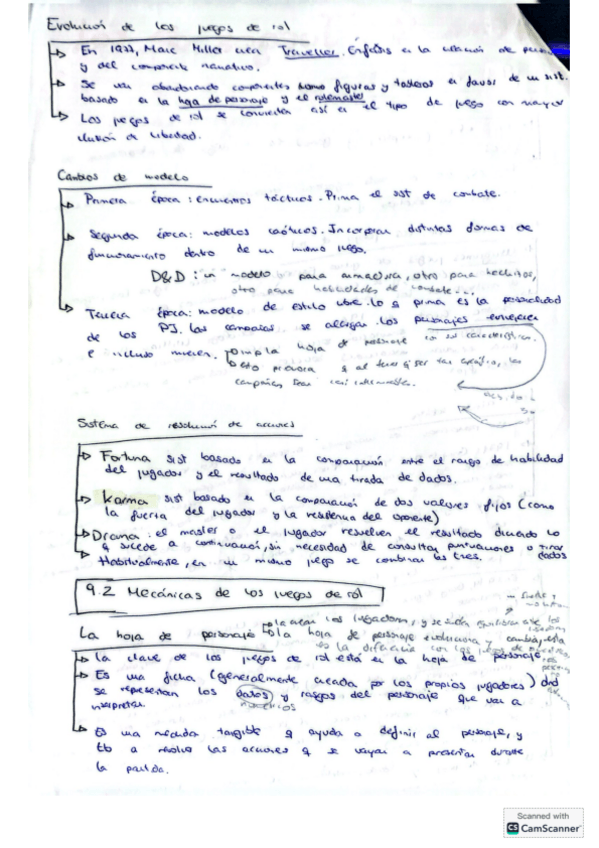 Evolución de los juegos de rol
En 1977, Marc Miller crea Traveller. Énfasis en la creación de
y del componente narrativo.
Se van abandonando componentes como figuras y tableros en favor de un sist.
basado en la hoja de personaje y el
Los juegos de rol se convierten así en el tipo de juego con mayor
ilusión de libertad.
Cambios de modelo
Primera época: encuentros tácticos. Prima el sist de combate.
Segunda época: modelos caóticos. Incorporan distintas formas de
funcionamiento dentro de un mismo juego.
D&D: un modelo para armadura, otro para hechizos,
otro para habilidades de combate...
Tercera época: modelo de estilo libre. Lo q prima es la personalidad
de los PJ. Las campañas se alargan. Los personajes envejecen
e incluso mueren.
hoja de personaje con sus características.
esto provoca q al tener q ser tan específico, las
campañas sean casi interminables.
Sistema de resolución de acciones
Fortuna sist basado en la comparación entre el rasgo de habilidad
del jugador y el resultado de una tirada de dados.
Karma sist basado en la comparación de dos valores fijos (como
la fuerza del jugador y la resistencia del oponente)
Drama: el master o el jugador resuelven el resultado diciendo lo
q sucede a continuación, sin necesidad de consultar puntuaciones o tirar
dados
Habitualmente, en un mismo juego se combinan los tres.
9.2 Mecánicas de los juegos de rol
la crean los jugadores, y se
La hoja de personaje
la hoja de personaje evoluciona y cambia, esta
es la diferencia con los juegos de
La clave de los juegos de rol está en la hoja de personaje.
Es una ficha (generalmente creada por los propios jugadores) dnd
se representan los datos y rasgos del personaje que van a
numéricos
interpretar.
Es una medida tangible q ayuda a definir al personaje, y
tb a resolver las acciones q se vayan a presentar durante
la partida.
Scanned with
CS CamScanner